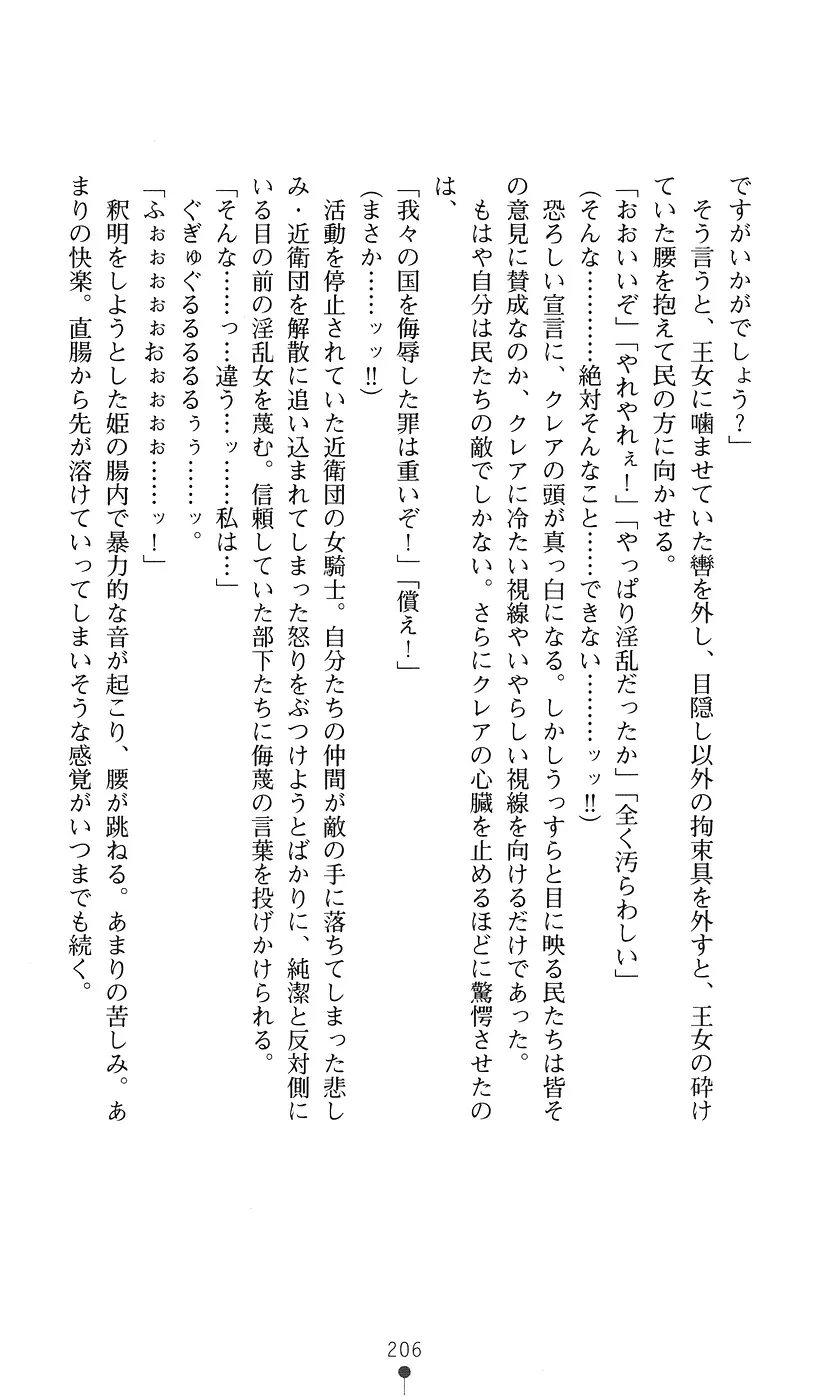 ですがいかがでしょう？」
　そう言うと、王女に噛ませていた轡を外し、目隠し以外の拘束具を外すと、王女の砕け
ていた腰を抱えて民の方に向かせる。
「おおいいぞ」「やれやれぇ！」「やっぱり淫乱だったか」「全く汚らわしい」
（そんな…………絶対そんなこと……できない………ッッ‼）
　恐ろしい宣言に、クレアの頭が真っ白になる。しかしうっすらと目に映る民たちは皆そ
の意見に賛成なのか、クレアに冷たい視線やいやらしい視線を向けるだけであった。
　もはや自分は民たちの敵でしかない。さらにクレアの心臓を止めるほどに驚愕させたの
は、
「我々の国を侮辱した罪は重いぞ！」「償え！」
（まさか……ッッ‼）
　活動を停止されていた近衛団の女騎士。自分たちの仲間が敵の手に落ちてしまった悲し
み・近衛団を解散に追い込まれてしまった怒りをぶつけようとばかりに、純潔と反対側に
いる目の前の淫乱女を蔑む。信頼していた部下たちに侮蔑の言葉を投げかけられる。
「そんな……っ…違う…ッ……私は…」
　ぐぎゅぐるるるるるぅぅ……ッ。
「ふぉぉぉぉぉおぉぉぉぉ……ッ！」
　釈明をしようとした姫の腸内で暴力的な音が起こり、腰が跳ねる。あまりの苦しみ。あ
まりの快楽。直腸から先が溶けていってしまいそうな感覚がいつまでも続く。
206